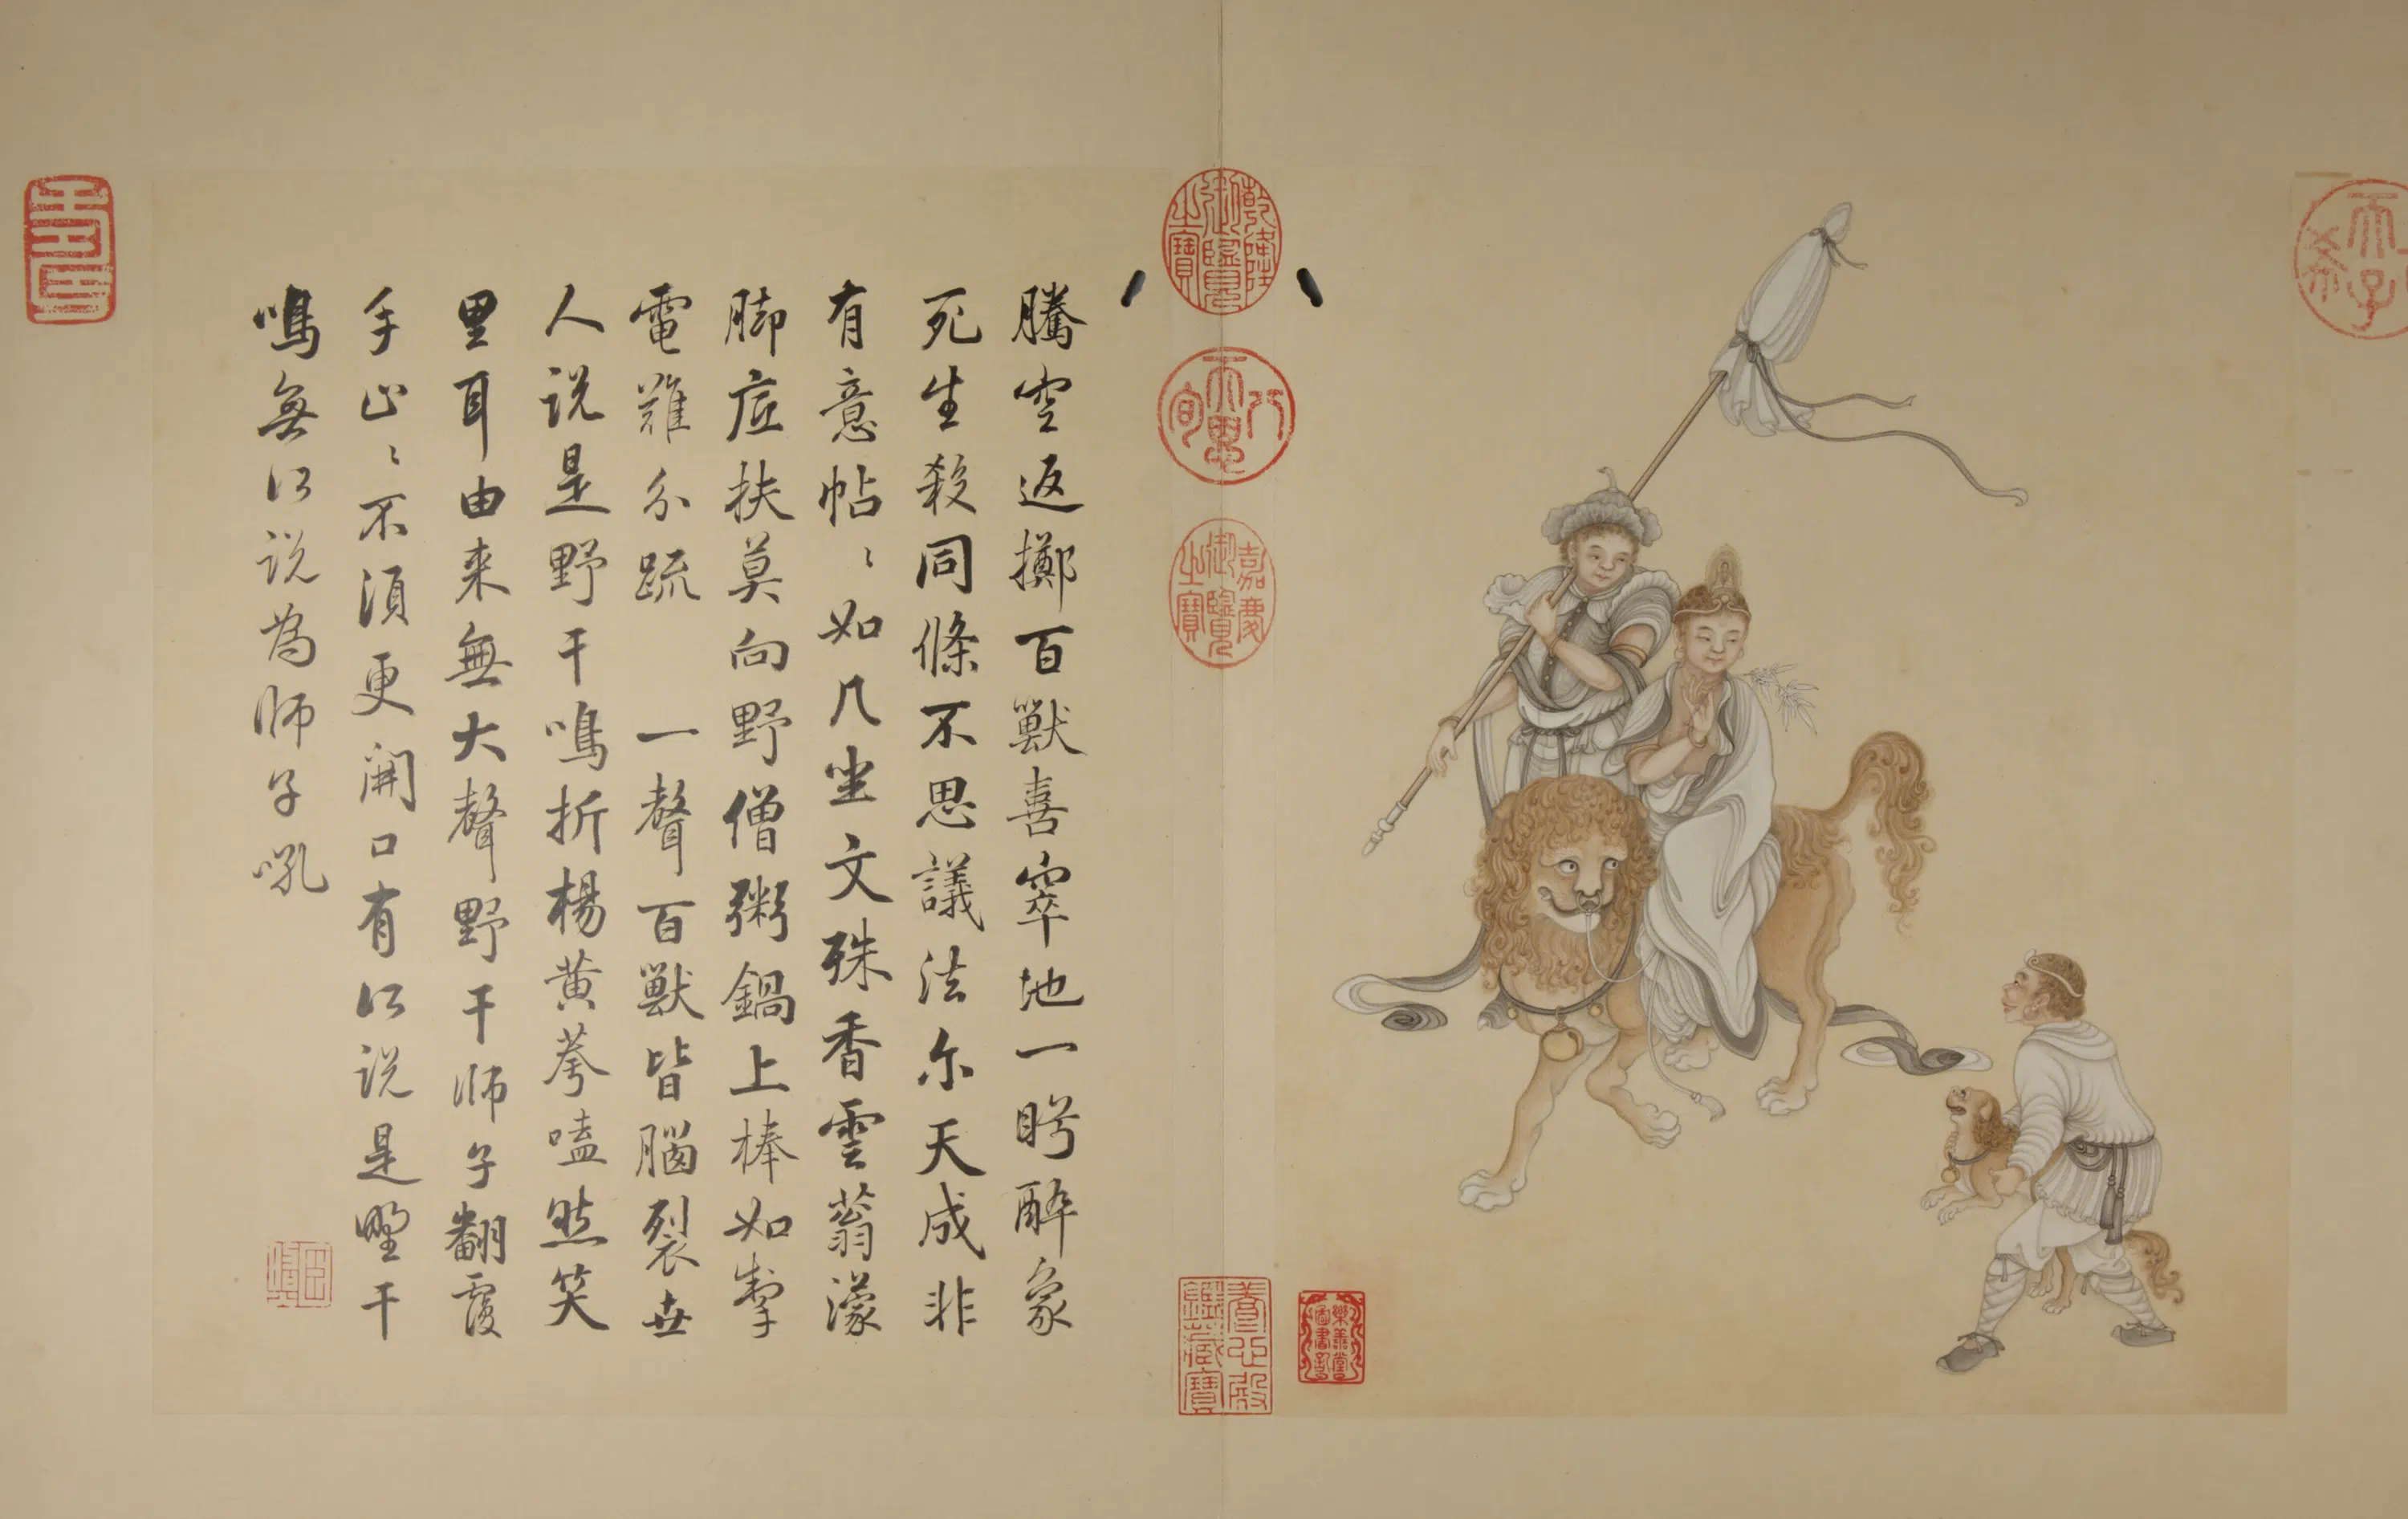 希天子
騰空返擲百獸喜窣地一眄醉象
死生殺同條不思議法尔天成非
有意帖〻如几坐文殊香雲蓊濛
脚底扶莫向野僧粥鍋上棒如掣
電難分疏 一聲百獸皆腦裂世
人説是野干鳴折楊黄荂嗑然笑
里耳由来無大聲野干師子翻覆
手止〻不湏更開口有㕥説是野干
鳴無㕥説為師子吼
乾隆御覽之寶
八旬天恩
嘉慶御覽之寶
養心殿鑑藏寶
樂善堂圖書記
壽